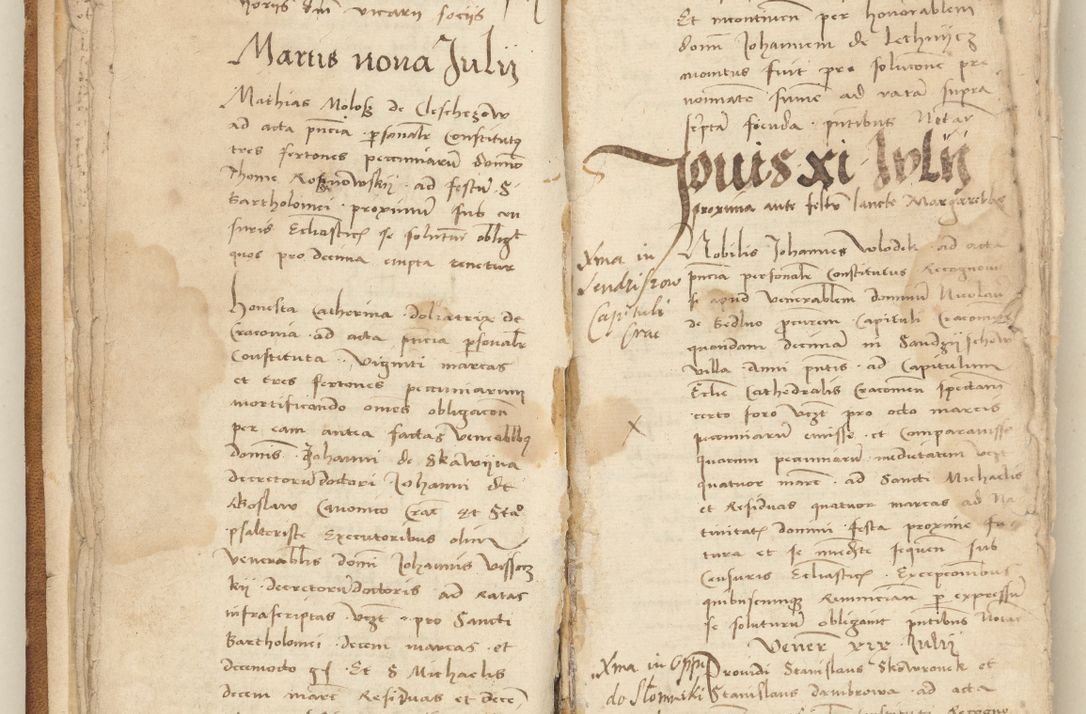 horiis dni vicarii sociis
Martis nona Julij
Mathias Molosz de Cleschczow
ad acta pncia psonalr Constitutus
tres fertones pecuniarum domino
Thome Rosznowskij ad festum S
Bartholomei proximum sub cen
suris Eccliasticis se soluturum obligat
quos pro decima empta tenetur
Honesta Catherina doliatrix de
Cracovia ad acta pncia psonalr
Constituta Viginti marcas
et tres fertones pecuniarum
mortificando omnes obligacon
per eam antea factas Venerablibus
dominis Johanni de Skawijna
decretorum doctori Johanni de
Canonico Crac et Sta
psalteriste Executoribus olim
venerablis domini Johannis
kij decretorum doctoris ad Ratas
infrascriptas Vczt pro Sancti
Bartholomei decem marcas et
Et S Michaelis
decem marc Residuas et
Et incontinenti per honorablem
domin Johannem de
momtus fuit pro solucone pre
nominate summe ad ratam supra
scripta facienda pntibus Notar
Jouis xi Julij
proxima ante festum sancte Margarethe
Xma in
Sendziszow
Capituli
Crac
Nobilis Johannes Wlodek ad acta
pncia personalr Constitutus Recognouit
se apud Venerablem dominum Nicolaum
de Bedlno pcurem Capituli Cracovien
quondam decimam in Sandzijschow
villa Anni pntis ad Capitulum
Ecclie Cathedralis Cracovien spectan
certo foro Vczt pro octo marcis
pecuniarum emisse et Comparauisse
quarum pecuniarum medietatem Vczt
quatuor marc ad Sancti Michaelis
et Residuas quatuor marcas ad Na
tiuitatis domini festa proxime fu
tura et se immediate sequen sub
Censuris Eccliasticis Excepcionibus
quibuscumque Renuncian p expressum
se soluturum obligauit pntibus Notar
Veneris xix Julij
Xma in
do Slomniki
Prouidi Stanislaus Skawronek et
Stanislaus Dambrowa ad acta